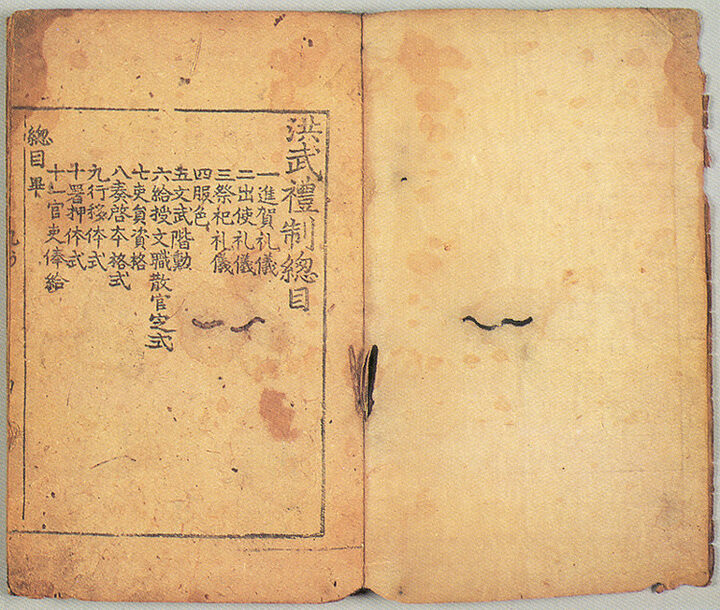 洪武禮制總目
一進賀礼儀
二出使礼儀
三祭祀礼儀
四服色
五文武階勳
六給授文職散官定式
七吏員資格
八奏啓本格式
九行移体式
十署押体式
十一官吏俸給
總目畢